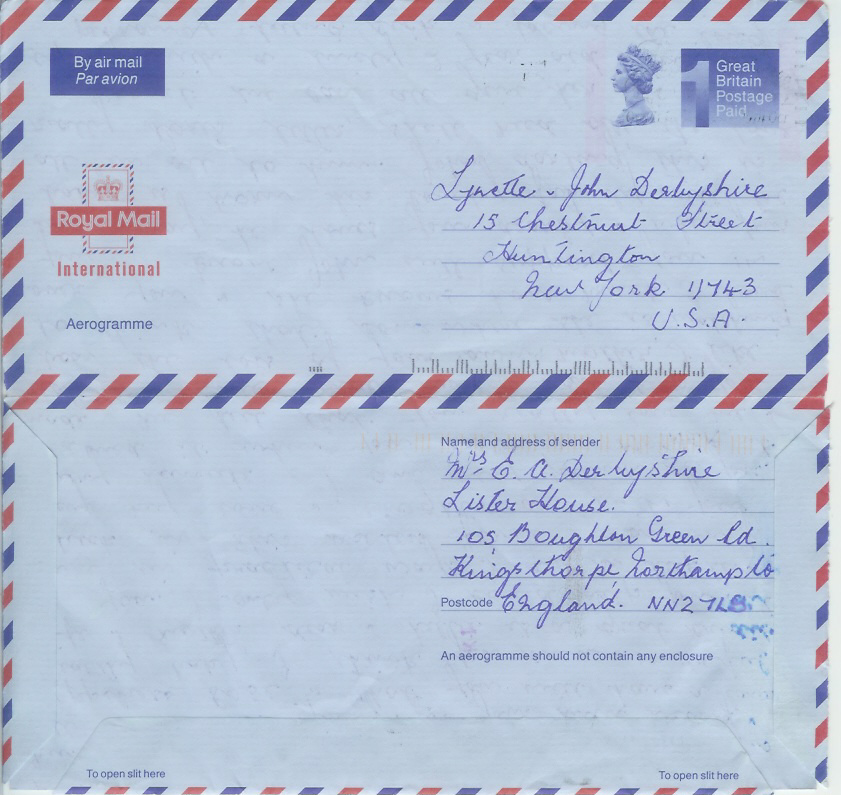 By air mail
Par avion
1
Great
Britain
Postage
Paid
Royal Mail
International
Aerogramme
Lynette & John Derbyshire
15 Chestnut Street
Huntington
New York 11743
U.S.A.
Name and address of sender
Mrs E. A. Derbyshire
Lister House.
105 Boughton Green Rd.
Kingsthorpe, Northampto
Postcode England. NN2
An aerogramme should not contain any enclosure
To open slit here
To open slit here